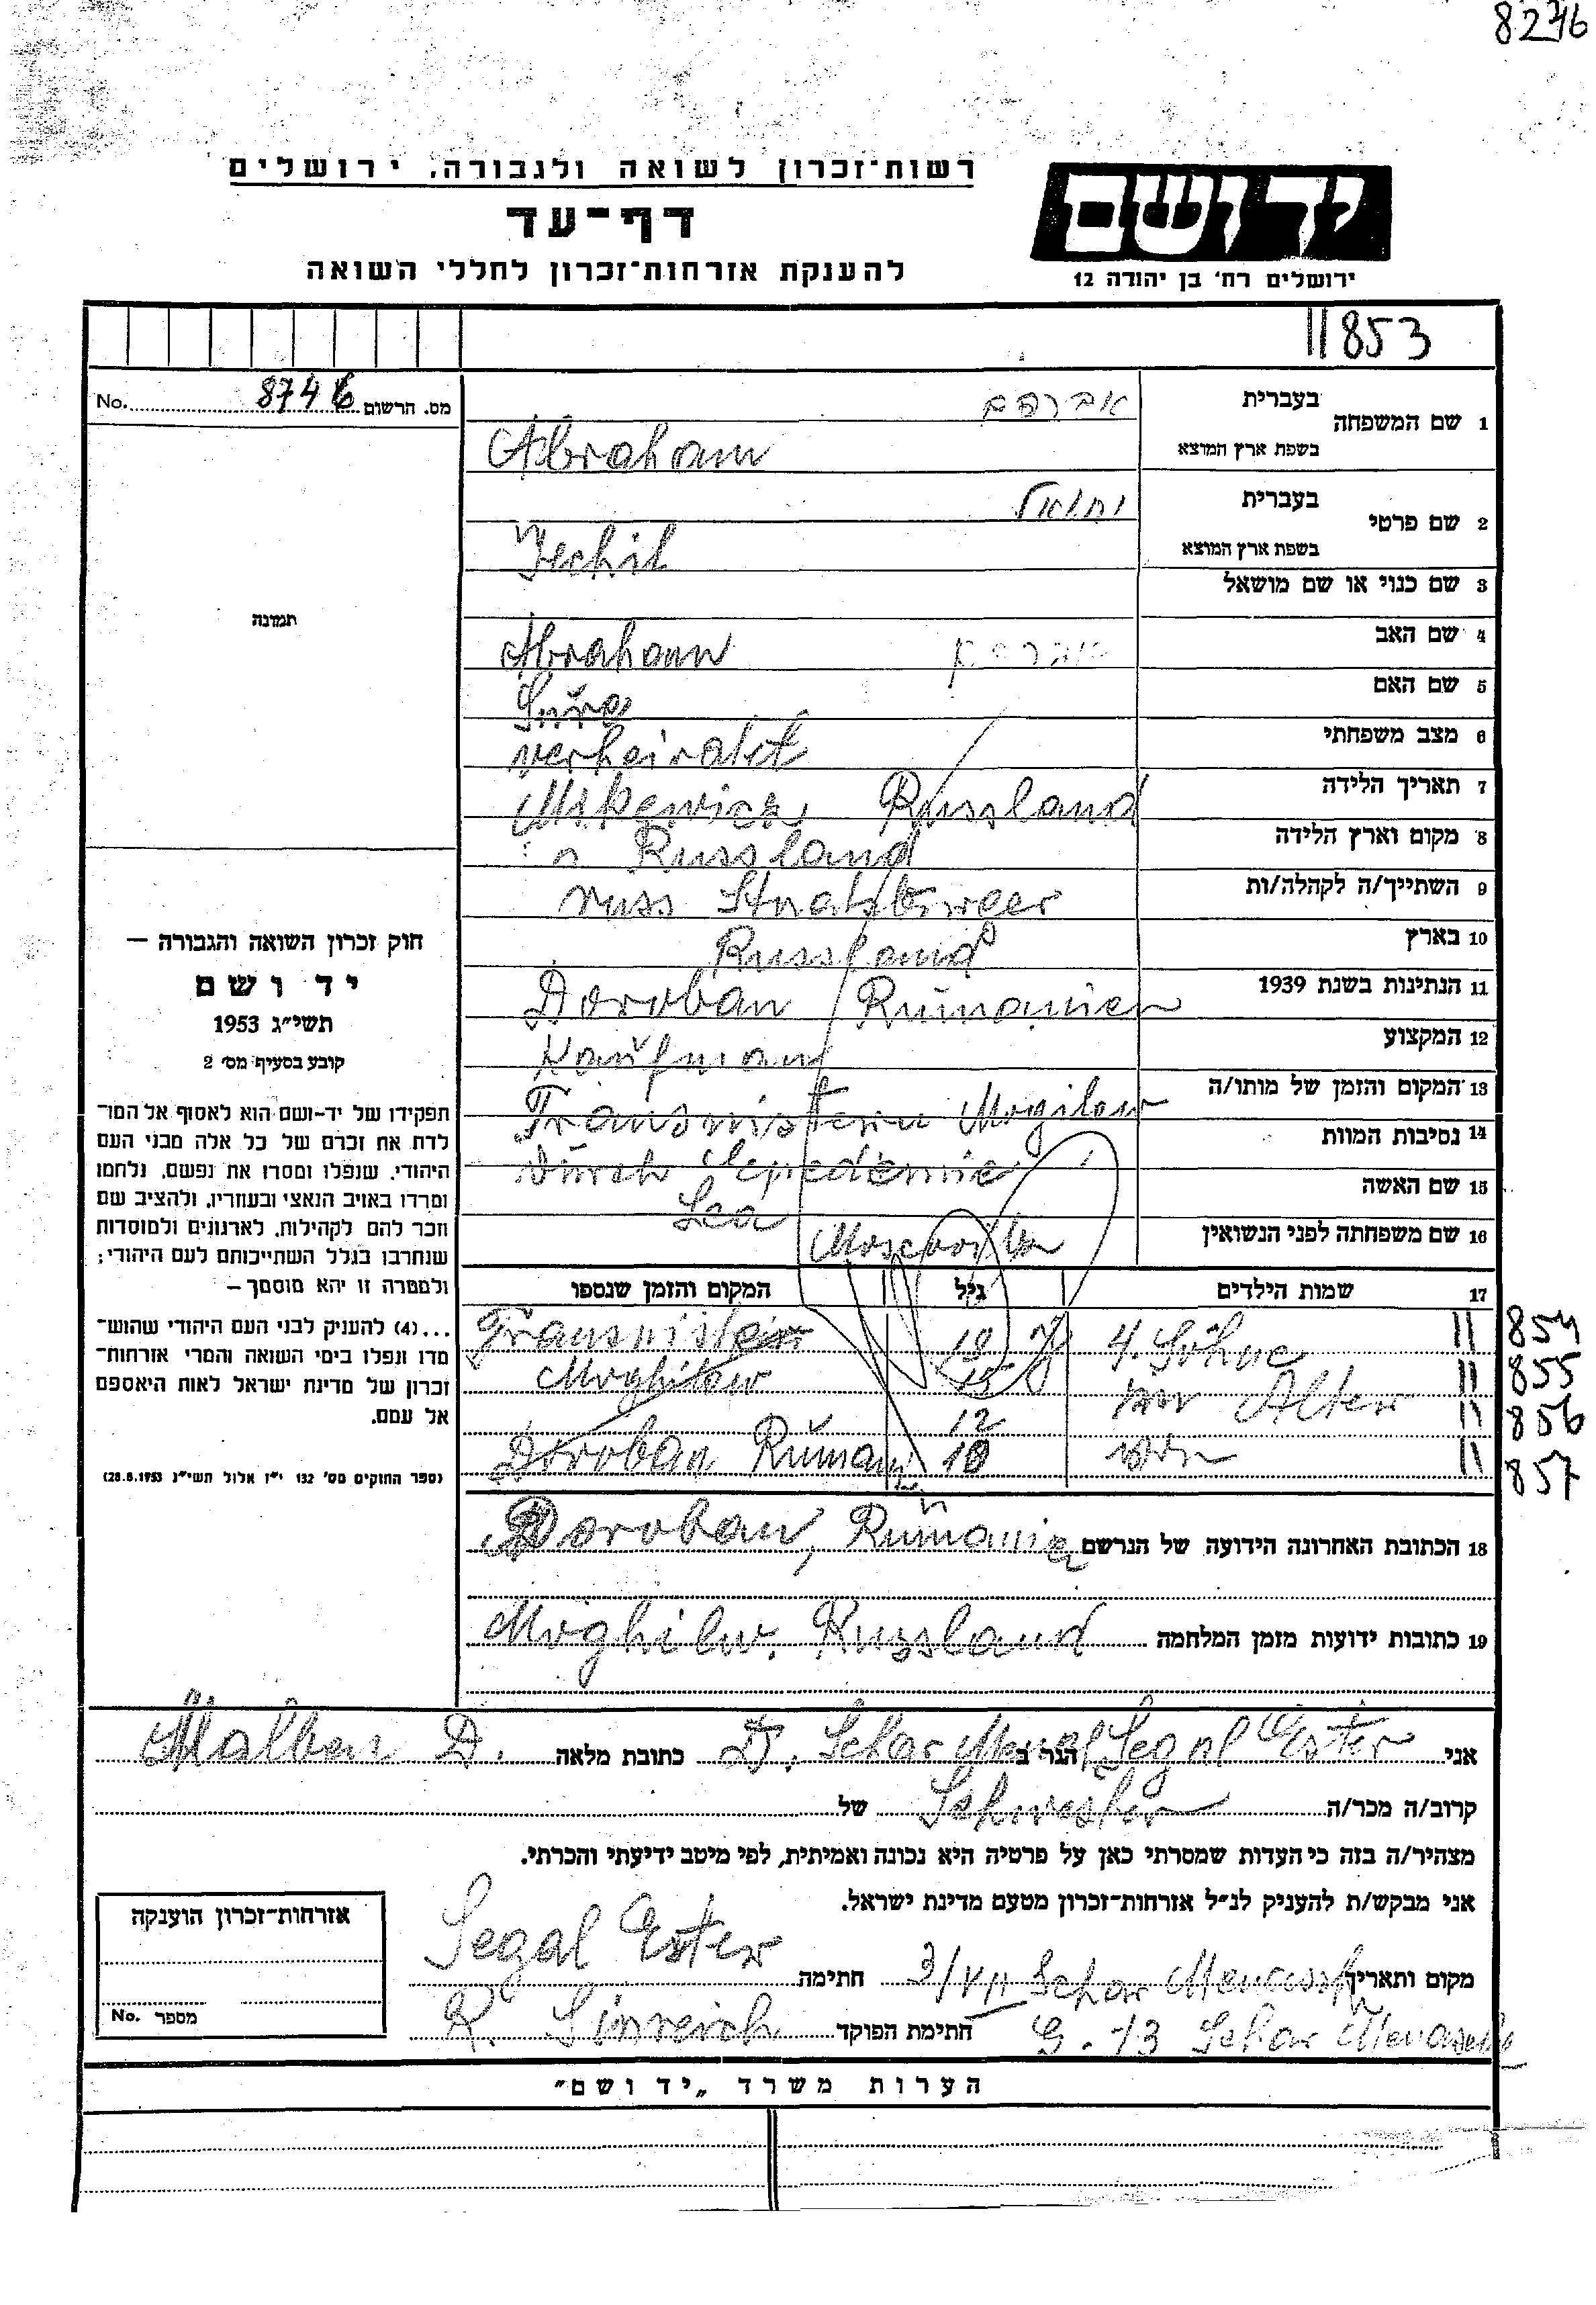 8246
רשות־זכרון לשואה ולגבורה. ירושלים
דף־עד
להענקת אזרחות־זכרון לחללי השואה
יד ושם
ירושלים רח' בן יהודה 12
853
No. 8746 מס. הרשום
1 שם המשפחה
בעברית אברהם
בשפת ארץ המוצא Abraham
2 שם פרטי
בעברית יחיאל
בשפת ארץ המוצא Jechil
3 שם כנוי או שם מושאל
תמונה
4 שם האב Abraham אברהם
5 שם האם Sura
6 מצב משפחתי verheiratet
7 תאריך הלידה Russland
8 מקום וארץ הלידה Russland
9 השתייך/ה לקהלה/ות russ Staatsbürger
10 בארץ Russland
11 הנתינות בשנת 1939 Doroban Rŭmanien
12 המקצוע Kaŭfman
13 המקום והזמן של מותו/ה Transnistern Mogilow
14 נסיבות המוות Dŭrch Epedemie
15 שם האשה Lea
16 שם משפחתה לפני הנשואין
חוק זכרון השואה והגבורה —
יד ושם
תשי״ג 1953
קובע בסעיף מס' 2
תפקידו של יד-ושם הוא לאסוף אל המו־
לדת את זכרם של כל אלה מבני העם
היהודי, שנפלו ומסרו את נפשם, נלחמו
ומרדו באויב הנאצי ובעוזריו, ולהציב שם
וזכר להם לקהילות, לארגונים ולמוסדות
שנחרבו בגלל השתייכותם לעם היהודי;
ולמטרה זו יהא מוסמך —
...(4) להעניק לבני העם היהודי שהוש־
מדו ונפלו בימי השואה והמרי אזרחות־
זכרון של מדינת ישראל לאות היאספם
אל עמם.
(ספר החוקים מס' 132 י״ז אלול תשי״ג 28.8.1953)
17 שמות הילדים גיל המקום והזמן שנספו
4. Söhne 19 J Transnistrien 854
Alter 15 Moghilow 855
12 856
von 10 Doroban Rŭmani 857
18 הכתובת האחרונה הידועה של הנרשם Doroban, Rŭmanien
19 כתובות ידועות מזמן המלחמה Moghilw. Russland
אני Segal Ester הגר ב D. Schar Mena כתובת מלאה Malben D.
קרוב/ה מכר/ה Schwester של
מצהיר/ה בזה כי העדות שמסרתי כאן על פרטיה היא נכונה ואמיתית, לפי מיטב ידיעתי והכרתי.
אני מבקש/ת להעניק לנ״ל אזרחות־זכרון מטעם מדינת ישראל.
מקום ותאריך 3/VII Schar Menassh חתימה Segal Ester
G. 13 Schar Menasche חתימת הפוקד R. Sinreich
אזרחות־זכרון הוענקה
מספר No.
הערות משרד „יד ושם״